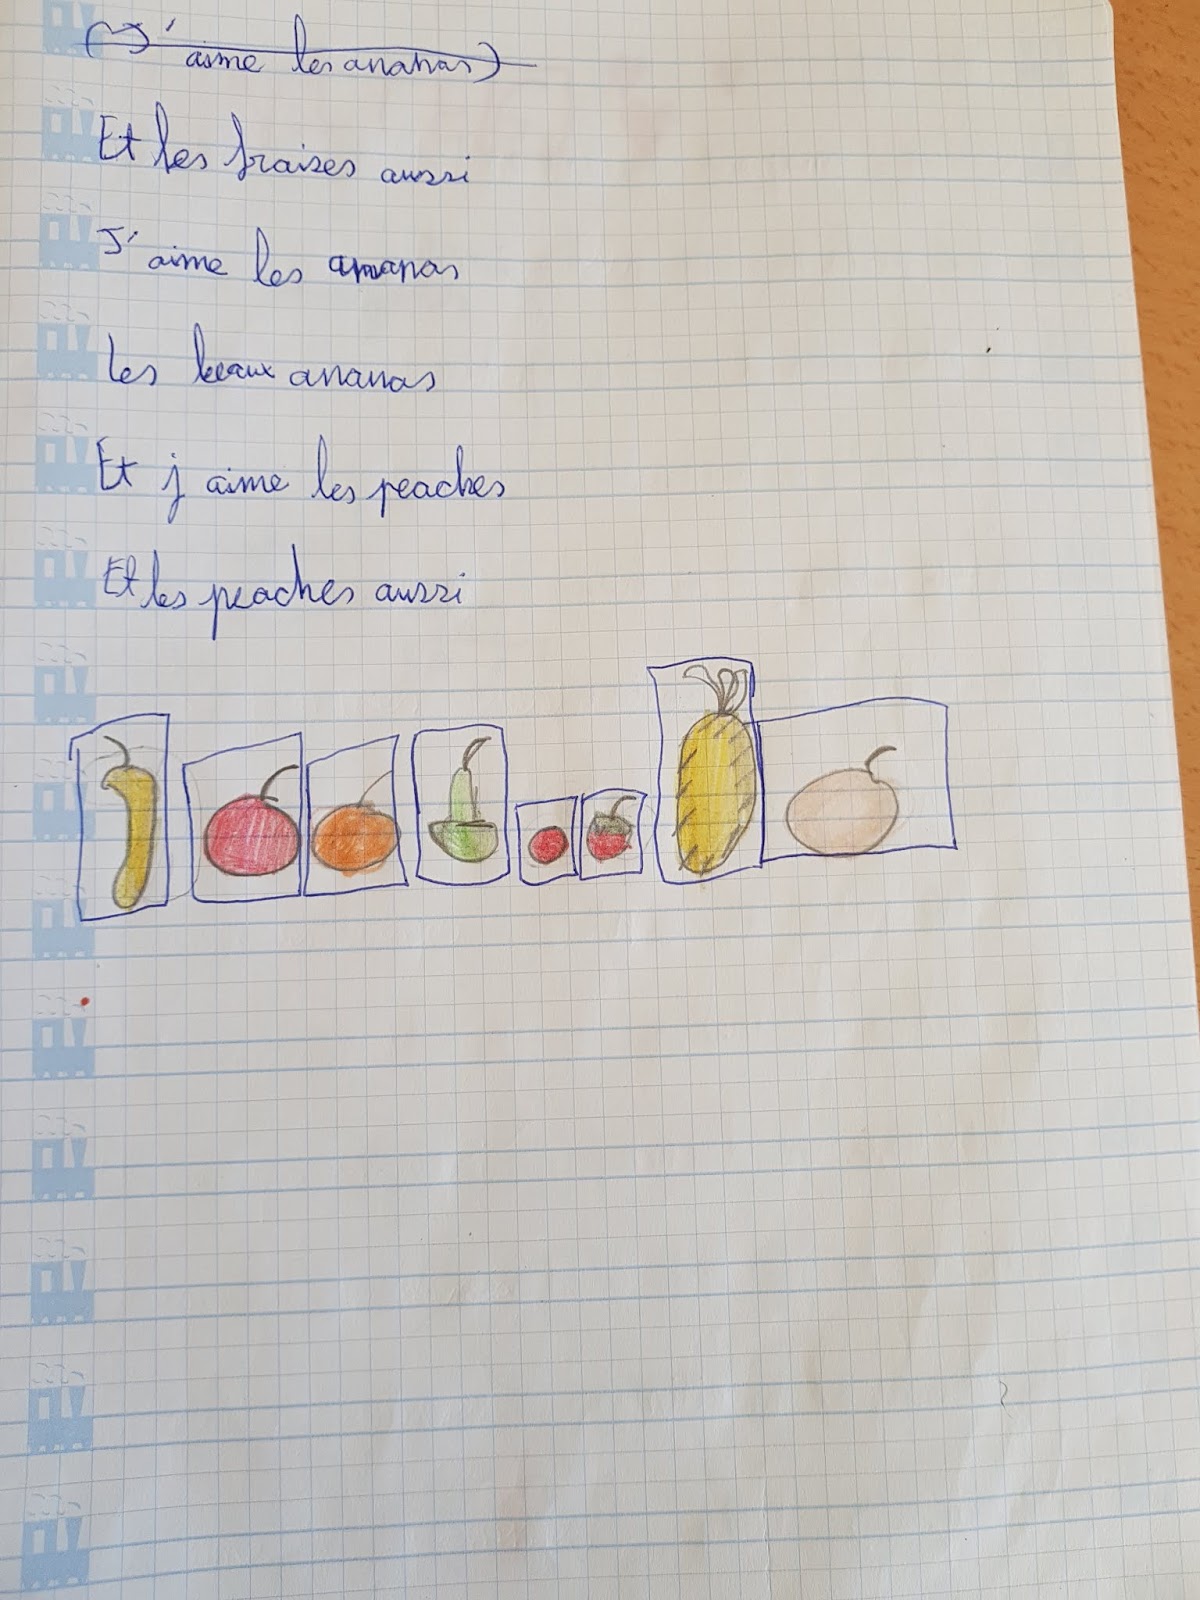 (J'aime les ananas)
Et les fraises aussi
J'aime les ananas
Les beaux ananas
Et j aime les peaches
Et les peaches aussi